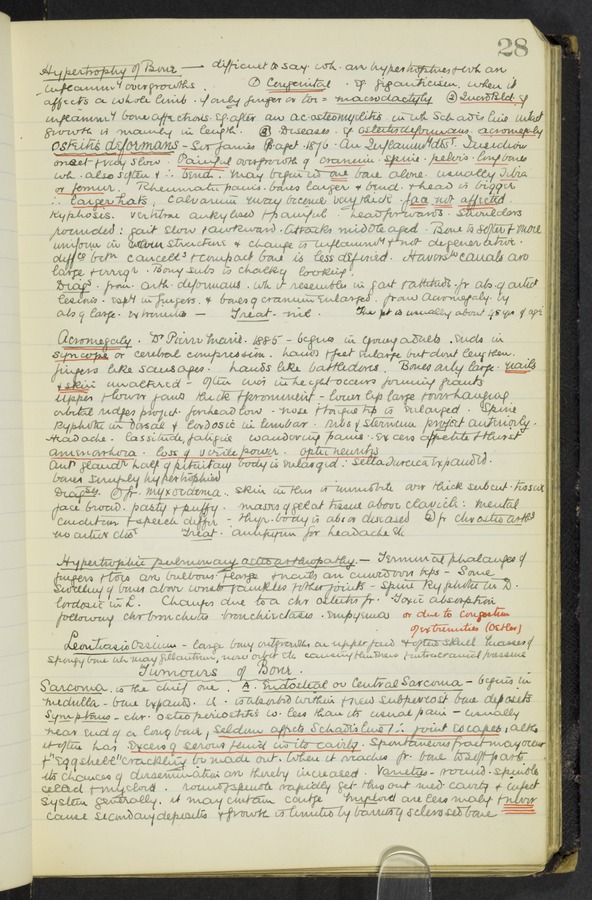 28
Hypertrophy of Bone — difficult to say wh. are hypertrophies & wh are
inflammy overgrowths. ① Congenital. of giganticism, when it
affects a whole limb. if only finger or toe = macrodactyly ②
inflammy bone affections. eg after an ac. osteomyelitis in wh Schadis line intact
growth is mainly in length. ③ Diseases. of osteitis deformans. acromegaly
Osteitis deformans — Sir James Paget 1876. An Inflammy dist.
onset & very slow. Painful overgrowth of cranium. spine. pelvis. long bones
wh. also soften & ∴ bend. may begin in one bone alone. usually tibia
or femur. Rheumatic pains. bones larger & bend. & head is bigger
∴ larger hats, calvarium may become very thick. face not affected
Kyphosis. vertebrae ankylosed & painful. head forwards. shoulders
rounded: gait slow & awkward. attacks middle aged. Bone is softer & more
uniform in structure & change is inflammy & not degenerative.
diffce betn cancells & compact bone is less defined. Havers canals are
large & irregr. Bony subs is chalky looking.
Diags. from. arth. deformans. wh it resembles in gait & attitude. fr abs of artic
lesions. esply in fingers. & bones of cranium enlarged. from Acromegaly. by
abs of large extremities — Treat. nil. The pt is usually about 45 yrs of age
Acromegaly. Dr Pierre Marie. 1885 — begins in young adults. Ends in
syncope or cerebral compression. hands & feet enlarge but dont lengthen.
fingers like sausages. hands like battledores. Bones only large. nails
& skin unaltered — often incr in height occurs forming giants
upper & lower jaws thick & prominent — lower lip large & overhanging
orbital ridges project. forehead low. nose & tongue tip is enlarged. Spine
Kyphotic in dorsal & lordosic in lumbar. ribs & sternum project anteriorly.
Headache. lassitude, fatigue wandering pains. Excess appetite & thirst
amenorrhoea. loss of virile power. optic neuritis
Antr glandr half of pituitary body is enlarged: Sella Turcica expanded.
bones simply hypertrophied
Diags. ① fr. myxoedema. skin in this is immobile over thick subcut. tissue
face broad. pasty & puffy. masses of gelat tissue above clavicle: mental
condition & speech differ — thyr. body is abs or diseased ② fr chr osteo arths
no artic dis Treat. antipyrin for headache &c
Hypertrophic pulmonary osteo arthropathy — Terminal phalanges of
fingers & toes are bulbous & large & nails are curved over tips — Some
swelling of bones above wrists & ankles & other joints — Spine kyphotic in D.
lordosic in L. Changes due to a chr osteitis fr. Toxic absorption
following chr bronchitis bronchiectasis. Empyema or due to congestion
of extremities (Osler)
Leontiasis Ossium — large bony outgrowths on upper jaw & often skull masses of
spongy bone wh may fill antrum, nose orbit &c causing blindness & intracranial pressure
Tumours of Bone.
Sarcoma. is the chief one. A. Endosteal or Central Sarcoma — begins in
medulla — bone expands. ie. is absorbed within & new subperiost bone deposits
Symptoms — chr. osteo periostitis w. less than its usual pain — usually
near end of a long bone, seldom affects Schadis line & ∴ joint escapes, altho
it often has excess of serous fluid in its cavity. Spontaneous fract may occur
& "Eggshell" crackling be made out. When it reaches fr. bone to soft parts
its chances of dissemination are thereby increased. Varieties — round. spindle
celled & myeloid. round & spindle rapidly get thro out med cavity & infect
System generally. it may contain cartge. Myeloid are less maligt & never
cause secondary deposits & growth is limited by barrier of sclerosed bone